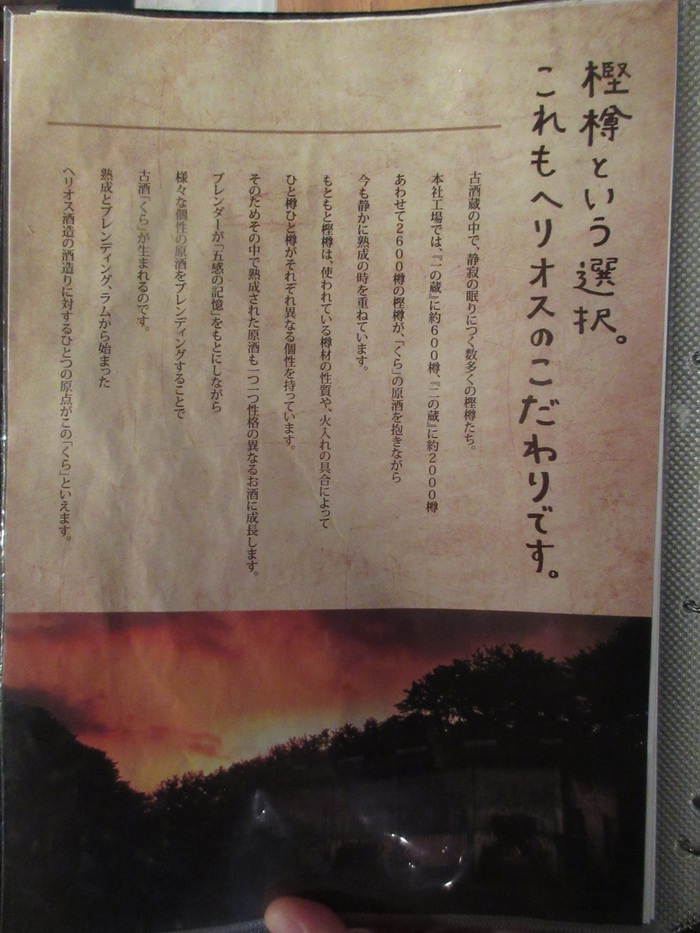 樫樽という選択。
これもヘリオスのこだわりです。
古酒蔵の中で、静寂の眠りにつく数多くの樫樽たち。
本社工場では、『一の蔵』に約600樽、『二の蔵』に約2000樽
あわせて2600樽の樫樽が、「くら」の原酒を抱きながら
今も静かに熟成の時を重ねています。
もともと樫樽は、使われている樽材の性質や、火入れの具合によって
ひと樽ひと樽がそれぞれ異なる個性を持っています。
そのためその中で熟成された原酒も一つ一つ性格の異なるお酒に成長します。
ブレンダーが「五感の記憶」をもとにしながら
様々な個性の原酒をブレンディングすることで
古酒「くら」が生まれるのです。
熟成とブレンディング、ラムから始まった
ヘリオス酒造の酒造りに対するひとつの原点がこの「くら」といえます。